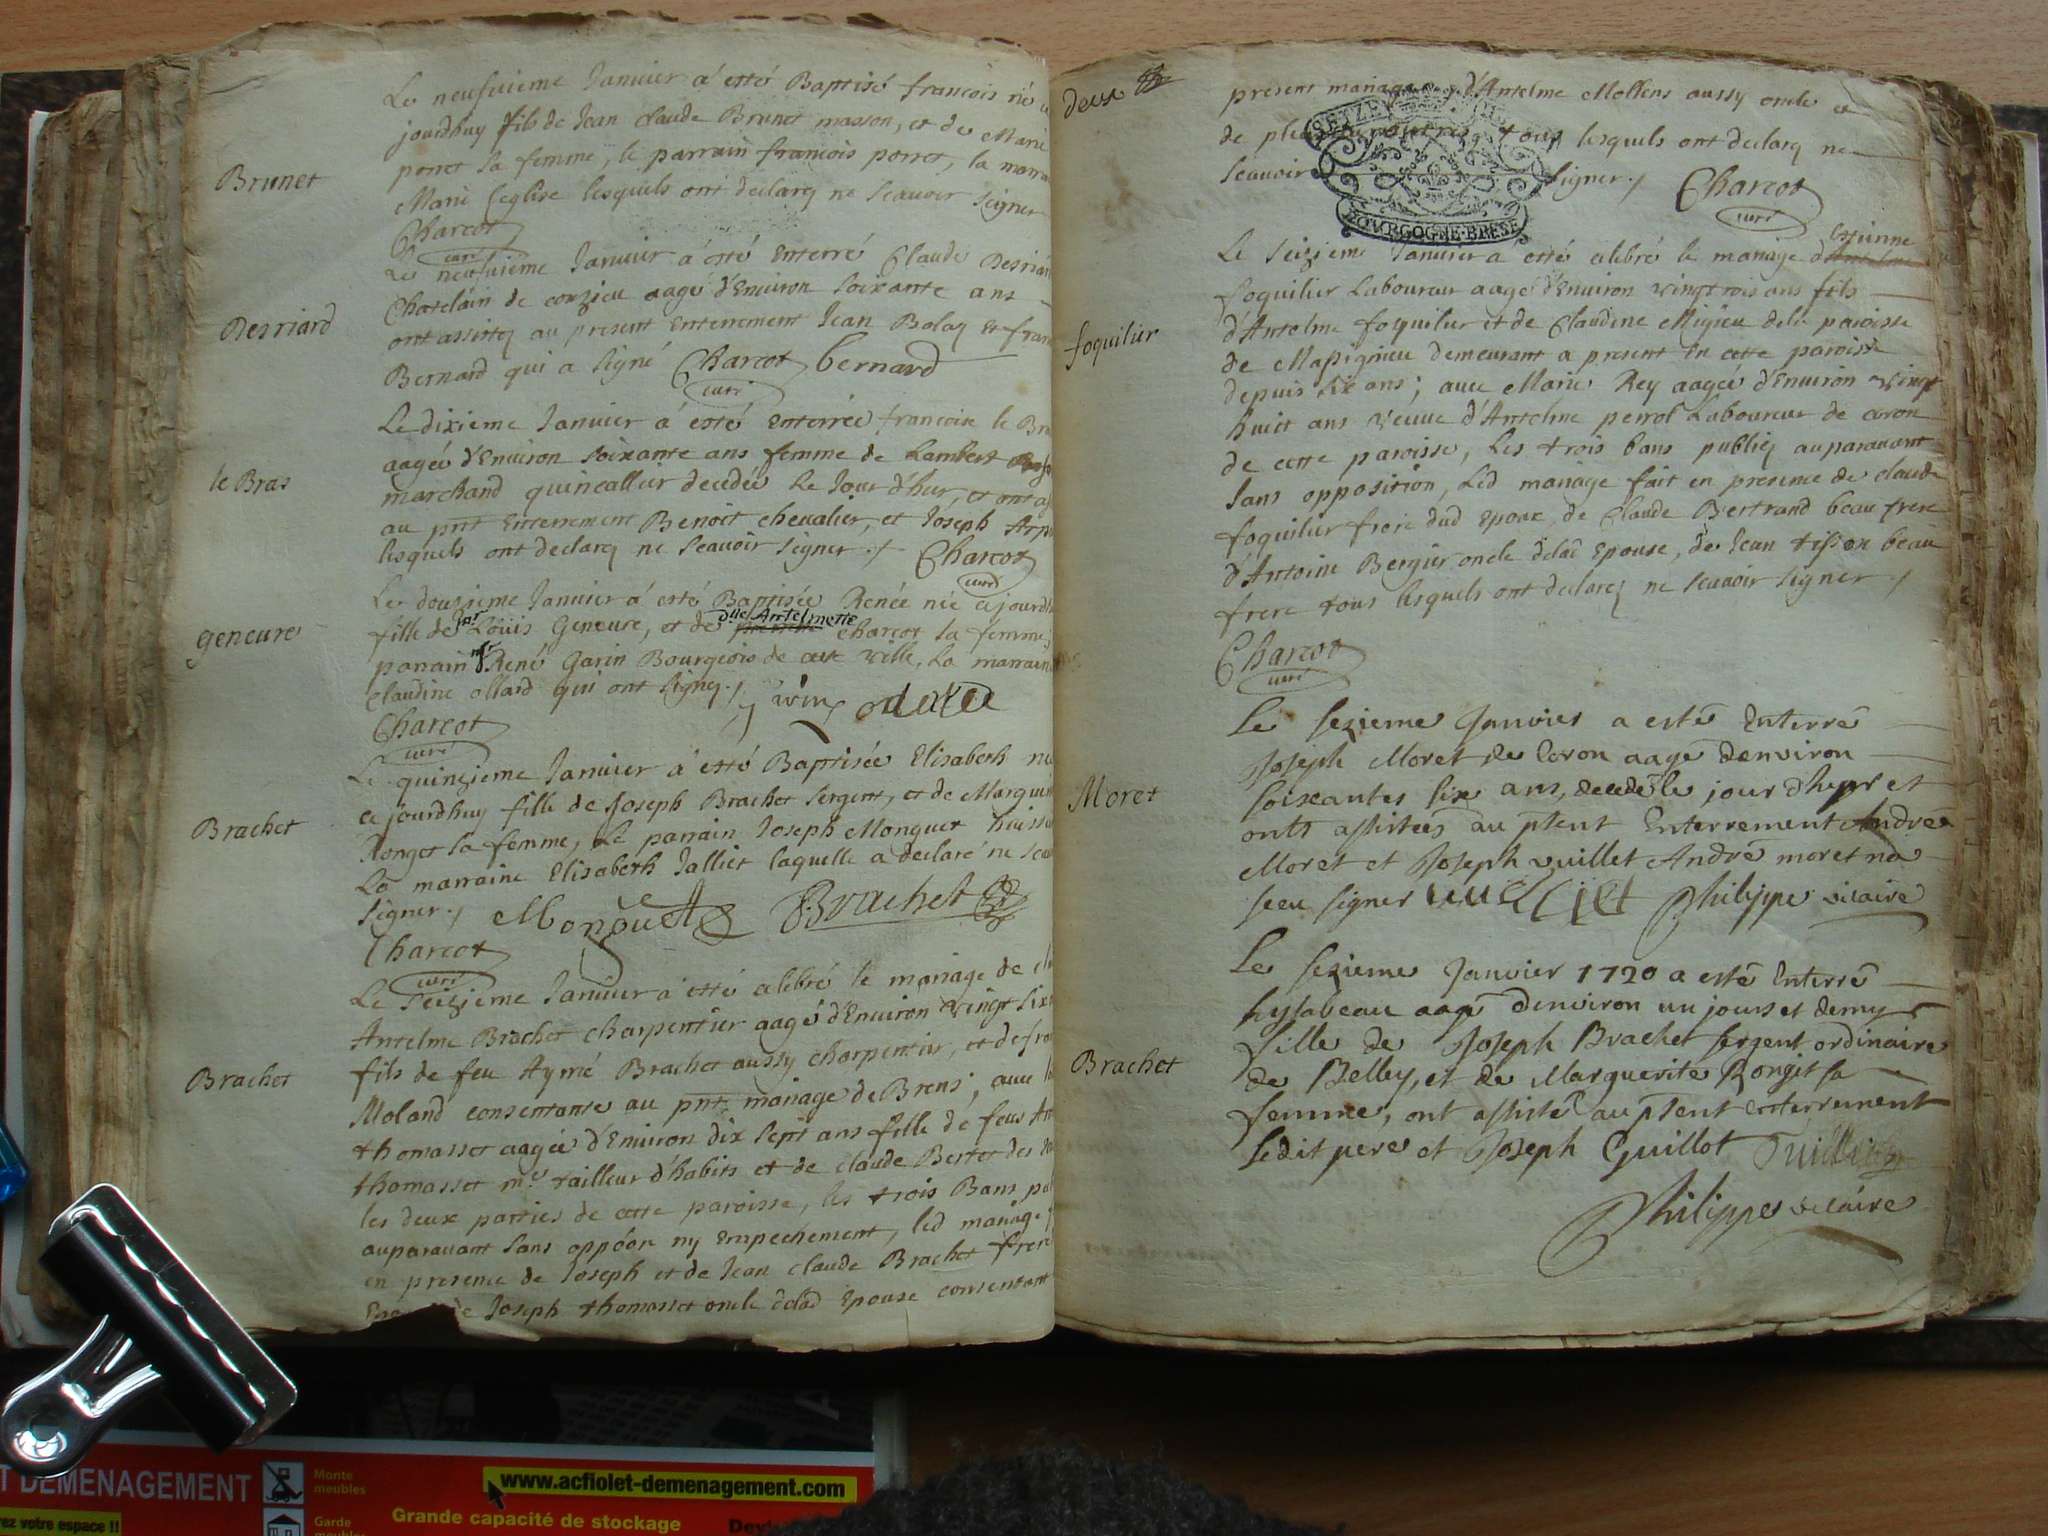 Le neufuieme Januier a esté Baptisé francois né
jourdhuy fils de Jean Claude Brunet masson, et de Marie
Brunet
ponet sa femme, le parrain francois ponet, la
Marie leglise lesquels ont declarez ne scauoir signer
Charcot
curé
Le neufuieme Januier a esté Enterré Claude Desriard
Chatelain de conzieu aagé d'Enuiron soixante ans
Desriard
ont assistez au present Enterrement Jean Bolaz Et
Bernard qui a signé Charcot bernard
curé
Le dixieme Januier a esté Enterrée francoise le
aageé d'Enuiron soixante ans femme de Lambert
le Bras
marchand quincallier decedée Le Jour d'hier, et ont
au pnt Enterrement Benoit cheualier, et Joseph
lesquels ont declarez ne scauoir signer ./ Charcot
curé
Le douzieme Januier a esté Baptisée Renée née
geneure
fille de sr Louis Geneure, et de dlle Antelmette Charcot sa femme
parrain mr René Garin Bourgeois de cette ville, la marraine
claudine ollard qui ont signez ./
Charcot
curé
Le quinzieme Januier a esté Baptisée Elisabeth
ce jourdhuy fille de Joseph Brachet sergent, et de
Brachet
Ronget sa femme, Le parrain Joseph Monguet
La marraine Elisabeth Jallier laquelle a declaré ne
signer ./ Monguet Brachet
Charcot
curé
Le seizieme Januier a esté celebré le mariage de
Antelme Brachet charpentier aagé d'Enuiron vingt six
Brachet
fils de feu Aymé Brachet aussy charpentier, et de
Moland consentante au pnt mariage de Brens, auec
thomasset aageé d'Enuiron dix sept ans fille de feus
thomasset me tailleur d'habits et de claude Bertet des
les deux parties de cette paroisse, les trois Bans
auparauant sans oppóon ny Empechement, led mariage
en presence de Joseph et de Jean claude Brachet frere
Joseph thomasset oncle de lad Epouse consentant
deux
present mariage d'Antelme Mollens aussy oncle et
de tous lesquels ont declarez ne
scauoir signer ./ Charcot
curé
BOURGOGNE·BRESE
Le seizieme Januier a esté celebré le mariage d'Estienne
foquilier Laboureur aagé d'Enuiron vingt trois ans fils
foquilier
d'Antelme foquilier et de Claudine Migieu de la paroisse
de Massignieu demeurant a present En cette paroisse
depuis six ans; auec Marie Rey aageé d'Enuiron vingt
huict ans veuue d'Antelme perrol Laboureur de coron
de cette paroisse, Les trois bans publiez auparauant
sans opposition, Led mariage fait en presence de claude
foquilier frere dud Epoux, de Claude Bertrand beau frere
d'Antoine Bergier oncle de lad Epouse, de Jean tisson beau
frere tous lesquels ont declarez ne scauoir signer ./
Charcot
curé
Le sezieme Janvier a esté Enterré
Joseph Moret de Coron aagé denviron
Moret
soixantes six ans, decedé le jour dhyer et
ontt assistées au ptent Enterrement André
Moret et Joseph vuillet André moret na
seeu signer vuilliet Philippe vicaire
Le sezieme Janvier 1720 a esté Enterré
hysabeau aagé denviron un jours et demy
fille de Joseph Brachet sergent ordinaire
Brachet
de Belley, et de Marguerite Rongit sa
femme, ont assisté au ptent enterrement
ledit pere et Joseph Guillot
Philippe vicaire
DEMENAGEMENT
Monte
meubles
www.acfiolet-demenagement.com
rez votre espace !!
Garde
meubles
Grande capacité de stockage